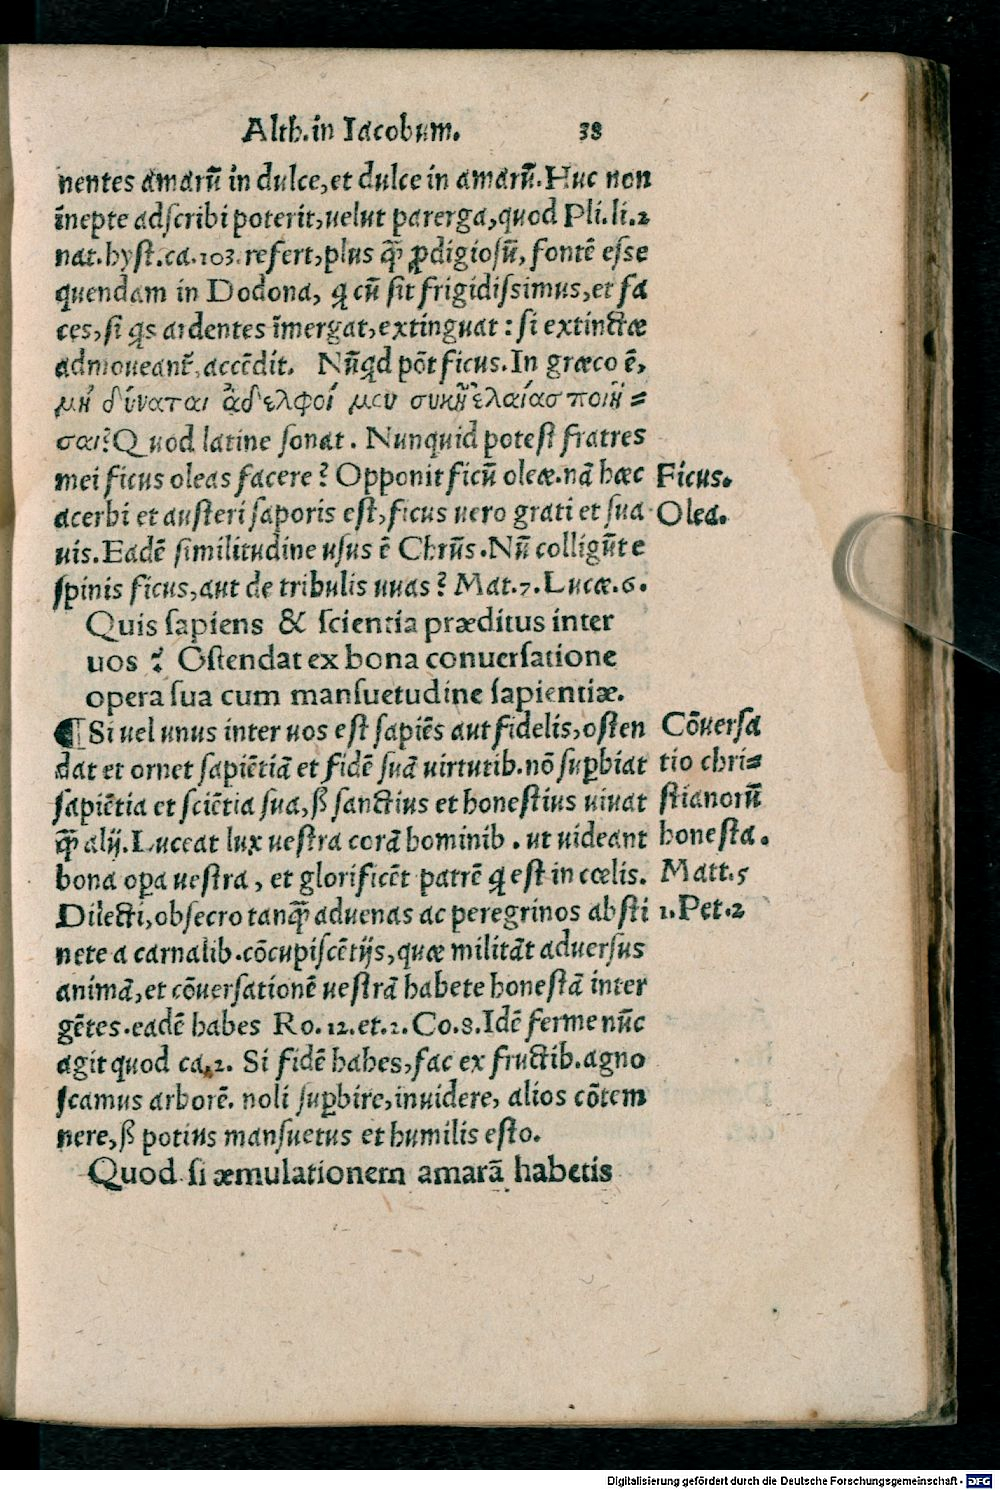 Alth. in Iacobum. 38
nentes amarū in dulce, et dulce in amarū. Huc non
īnepte adscribi poterit, uelut parerga, quod Pli. li. 2
nat. hyst. ca. 103. refert, plus q̃ꝫ ꝓdigiosū, fontē esse
quendam in Dodona, q̇ cū sit frigidissimus, et fa
ces, si q̇s ardentes īmergat, extinguat : si extinctæ
admoueant᷑, accēdit. Nūq̇d pōt ficus. In græco ē,
μὴ δύναται ἀδελφοί μου συκῆ ἐλαίας ποιῆ=
σαι? Quod latine sonat. Nunquid potest fratres
mei ficus oleas facere? Opponit ficū oleæ. nā hæc
Ficus.
acerbi et austeri saporis est, ficus uero grati et sua
Olea.
uis. Eadē similitudine usus ē Chrūs. Nū colligūt e
spinis ficus, aut de tribulis uuas? Mat. 7. Lucæ. 6.
Quis sapiens & scientia præditus inter
uos ? Ostendat ex bona conuersatione
opera sua cum mansuetudine sapientiæ.
¶ Si uel unus inter uos est sapiēs aut fidelis, osten
Cōuersa
dat et ornet sapiētiā et fidē suā uirtutib. nō suꝑbiat
tio chri=
sapiētia et sciētia sua, ß sanctius et honestius uiuat
stianorū
q̃ꝫ alij. Luceat lux uestra corā hominib. ut uideant
honesta.
bona oꝑa uestra, et glorificēt patrē q̇ est in cœlis.
Matt. 5
Dilecti, obsecro tanq̃ꝫ aduenas ac peregrinos absti
1. Pet. 2
nete a carnalib. cōcupiscētijs, quæ militāt aduersus
animā, et cōuersationē uestrā habete honestā inter
gētes. eadē habes Ro. 12. et. 2. Co. 8. Idē ferme nūc
agit quod ca. 2. Si fidē habes, fac ex fructib. agno
scamus arborē. noli suꝑbire, inuidere, alios cōtem
nere, ß potius mansuetus et humilis esto.
Quod si æmulationem amarā habetis
Digitalisierung gefördert durch die Deutsche Forschungsgemeinschaft - DFG